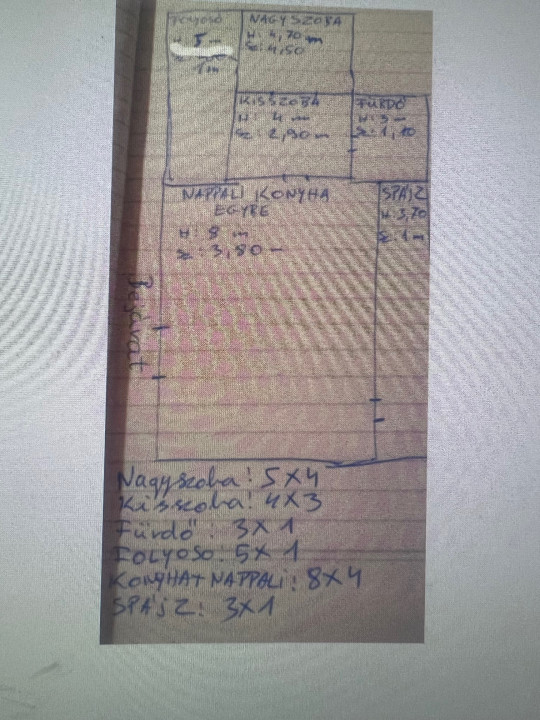 FOLYOSÓ
H: 5 m
1m
NAGYSZOBA
H: 4,70 m
SZ: 4,50
KISSZOBA
H: 4 m
SZ: 2,90 m
FÜRDŐ
H: 3 m
SZ: 1,10
NAPPALI KONYHA
EGYBE
H: 8 m
SZ: 3,80 m
SPÁJZ
H: 3,70
SZ: 1 m
Bejárat
Nagyszoba: 5X4
Kisszoba: 4X3
Fürdő: 3X1
FOLYOSO: 5X1
KONYHA+NAPPALI: 8X4
SPÁJZ: 3X1